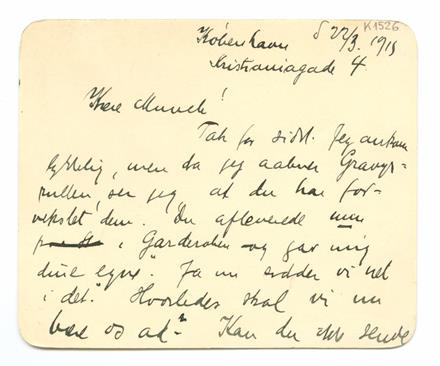 K1526
København d 22/3. 1919
Kristianiagade 4
Kære Munch!
Tak for sidst. Jeg ankom
lykkelig, men da jeg aabner Gravyr-
rullen, ser jeg at du har for-
vekslet dem. Du afleverede min
i Garderoben og gav mig
dine egne". Ja nu sidder vi net
i det". Hvorledes skal vi nu
bære os ad? Kan du ikke sende